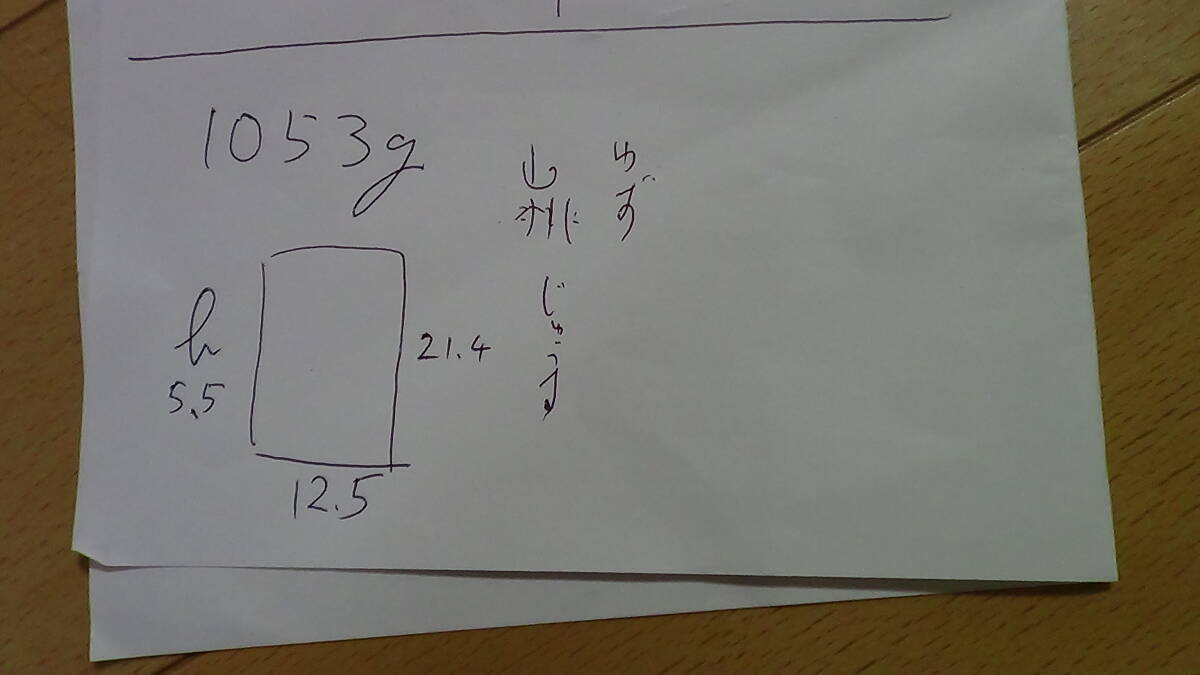 1053g
ゆず
山桃
じゅうす
h
5.5
21.4
12.5